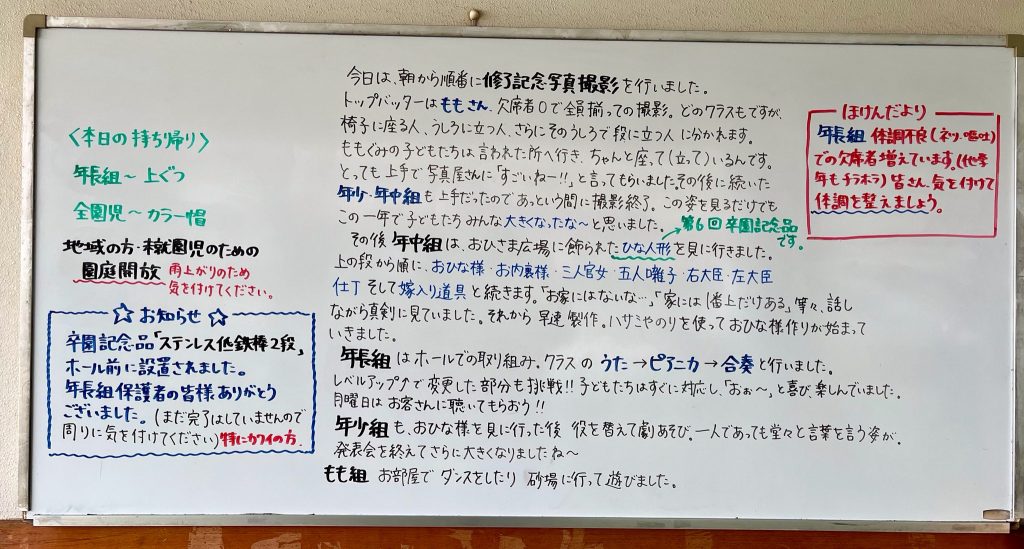 〈本日の持ち帰り〉
年長組～上ぐつ
全園児～カラー帽
地域の方・未就園児のための
園庭開放 雨上がりのため
気を付けてください。
☆お知らせ☆
卒園記念品「ステンレス低鉄棒2段」
ホール前に設置されました。
年長組保護者の皆様ありがとう
ございました。(まだ完了はしていませんので
周りに気を付けてください)特にカワイの方。
今日は、朝から順番に修了記念写真撮影を行いました。
トップバッターはももさん、欠席者0で全員揃っての撮影。どのクラスもですが、
椅子に座る人、うしろに立つ人、さらにそのうしろで段に立つ人に分かれます。
ももぐみの子どもたちは言われた所へ行き、ちゃんと座って(立て)いるんです。
とっても上手で写真屋さんに「すごいねー!!」と言ってもらいました。その後に続いた
年少・年中組も上手だったのであっという間に撮影終了。この姿を見るだけでも
この一年で子どもたちみんな大きくなったな～と思いました。
第6回卒園記念品
です。
その後年中組は、おひさま広場に飾られたひな人形を見に行きました。
上の段から順に、おひな様・お内裏様・三人官女・五人囃子・右大臣・左大臣
仕丁そして嫁入り道具と続きます。「お家にはないな…」「家には1番上だけある」等々、話し
ながら真剣に見ていました。それから早速製作。ハサミやのりを使っておひな様作りが始まって
いきました。
年長組はホールでの取り組み。クラスのうた→ピアニカ→合奏と行いました。
レベルアップ↑で変更した部分も挑戦!!子どもたちはすぐに対応し、「おぉ～」と喜び、楽しんでいました。
月曜日はお客さんに聴いてもらおう!!
年少組も、おひな様を見に行った後 役を替えて劇あそび。一人であっても堂々と言葉を言う姿が、
発表会を終えてさらに大きくなりましたね～
もも組 お部屋でダンスをしたり 砂場に行って遊びました。
ほけんだより
年長組 体調不良(ネツ・嘔吐)
での欠席者増えています。(他学
年もチラホラ)皆さん、気を付けて
体調を整えましょう。